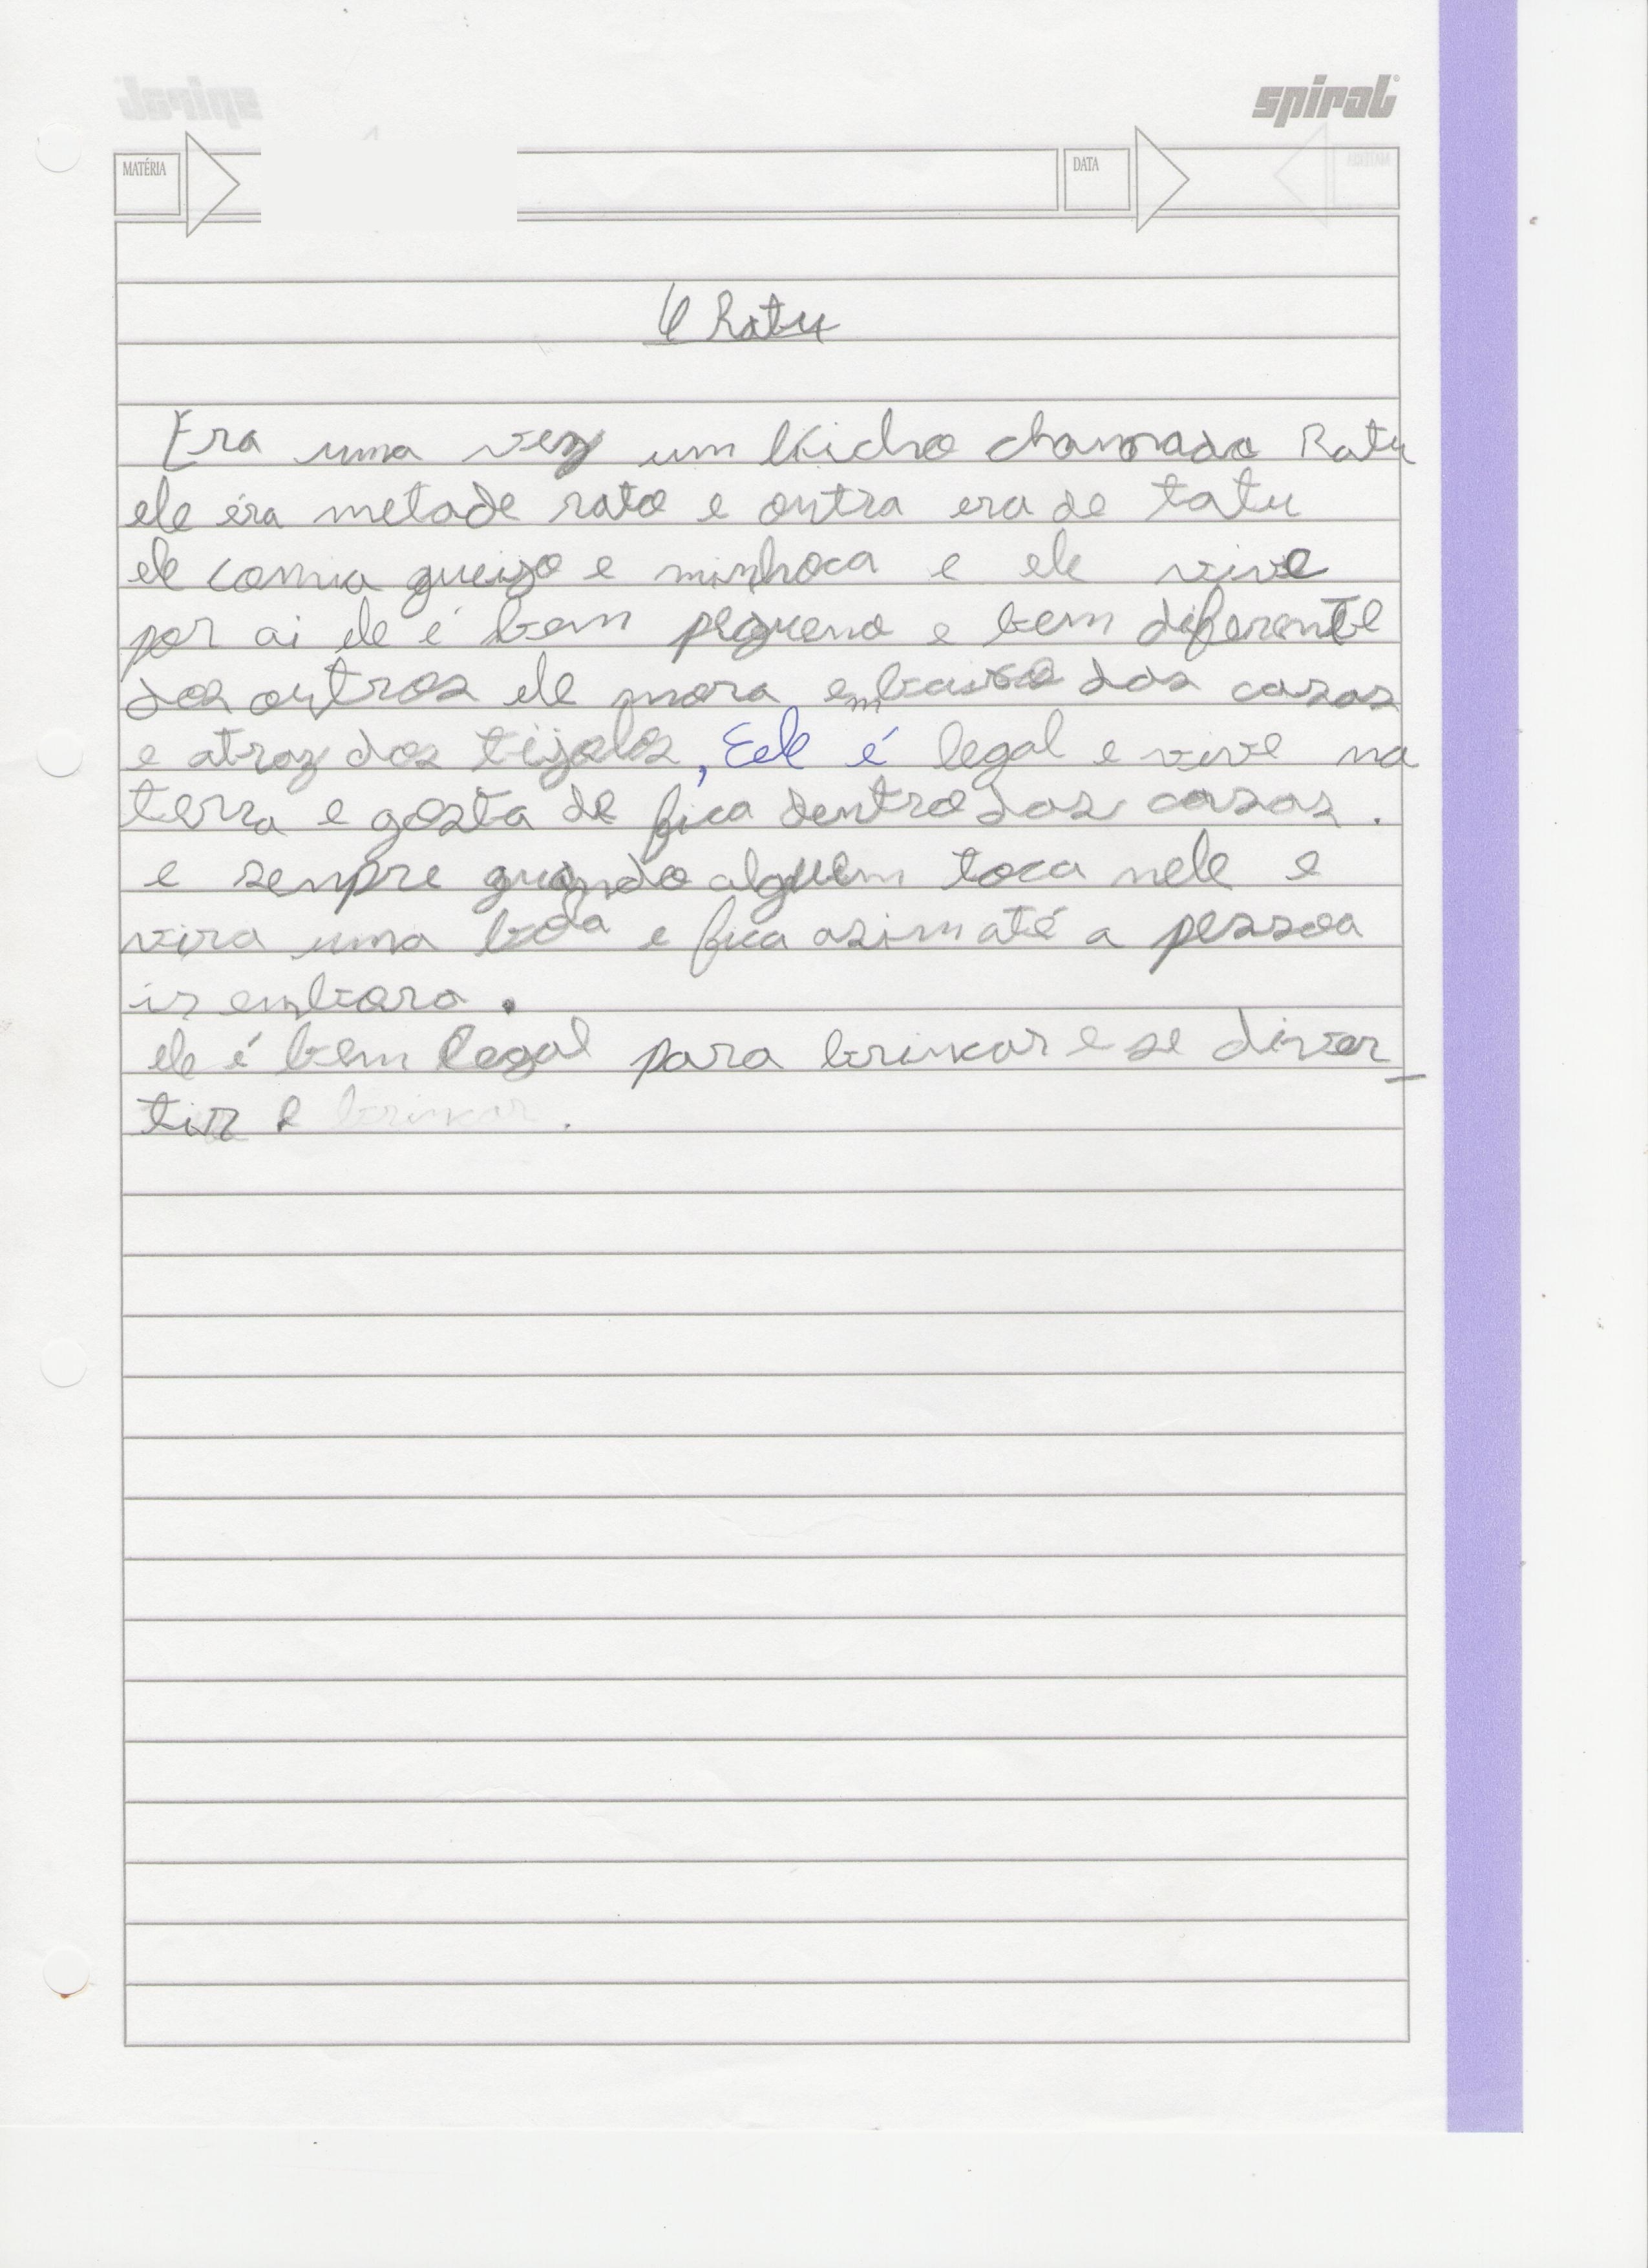 spiral
MATÉRIA
DATA
O Ratu
Era uma vez um bicho chamado Ratu
ele éra metade rato e outra era de tatu
ele comia queijo e minhoca e ele vive
por ai ele é bem pequeno e bem diferente
dos outros ele mora embaixo das casas
e atraz dos tijolos, Eele é legal e vive na
terra e gosta de fica dentro das casas.
e senpre quando alguem toca nele e
vira uma bola e fica asim até a pessoa
ir embora.
ele é bem legal para brinkar e se diver_
tir e brinkar.